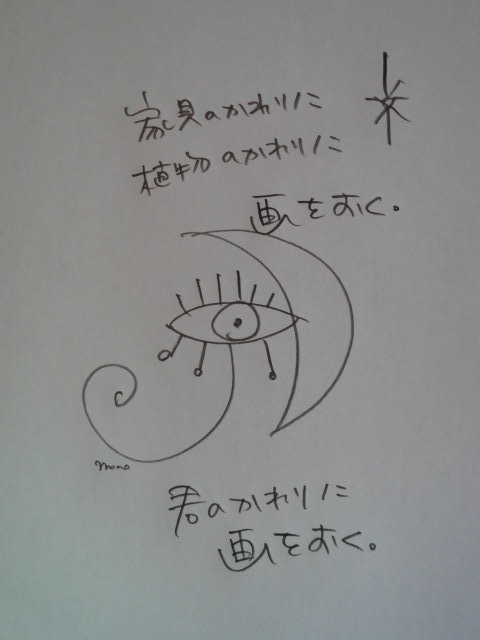 家具のかわりに
植物のかわりに
画をおく。
momo
君のかわりに
画をおく。